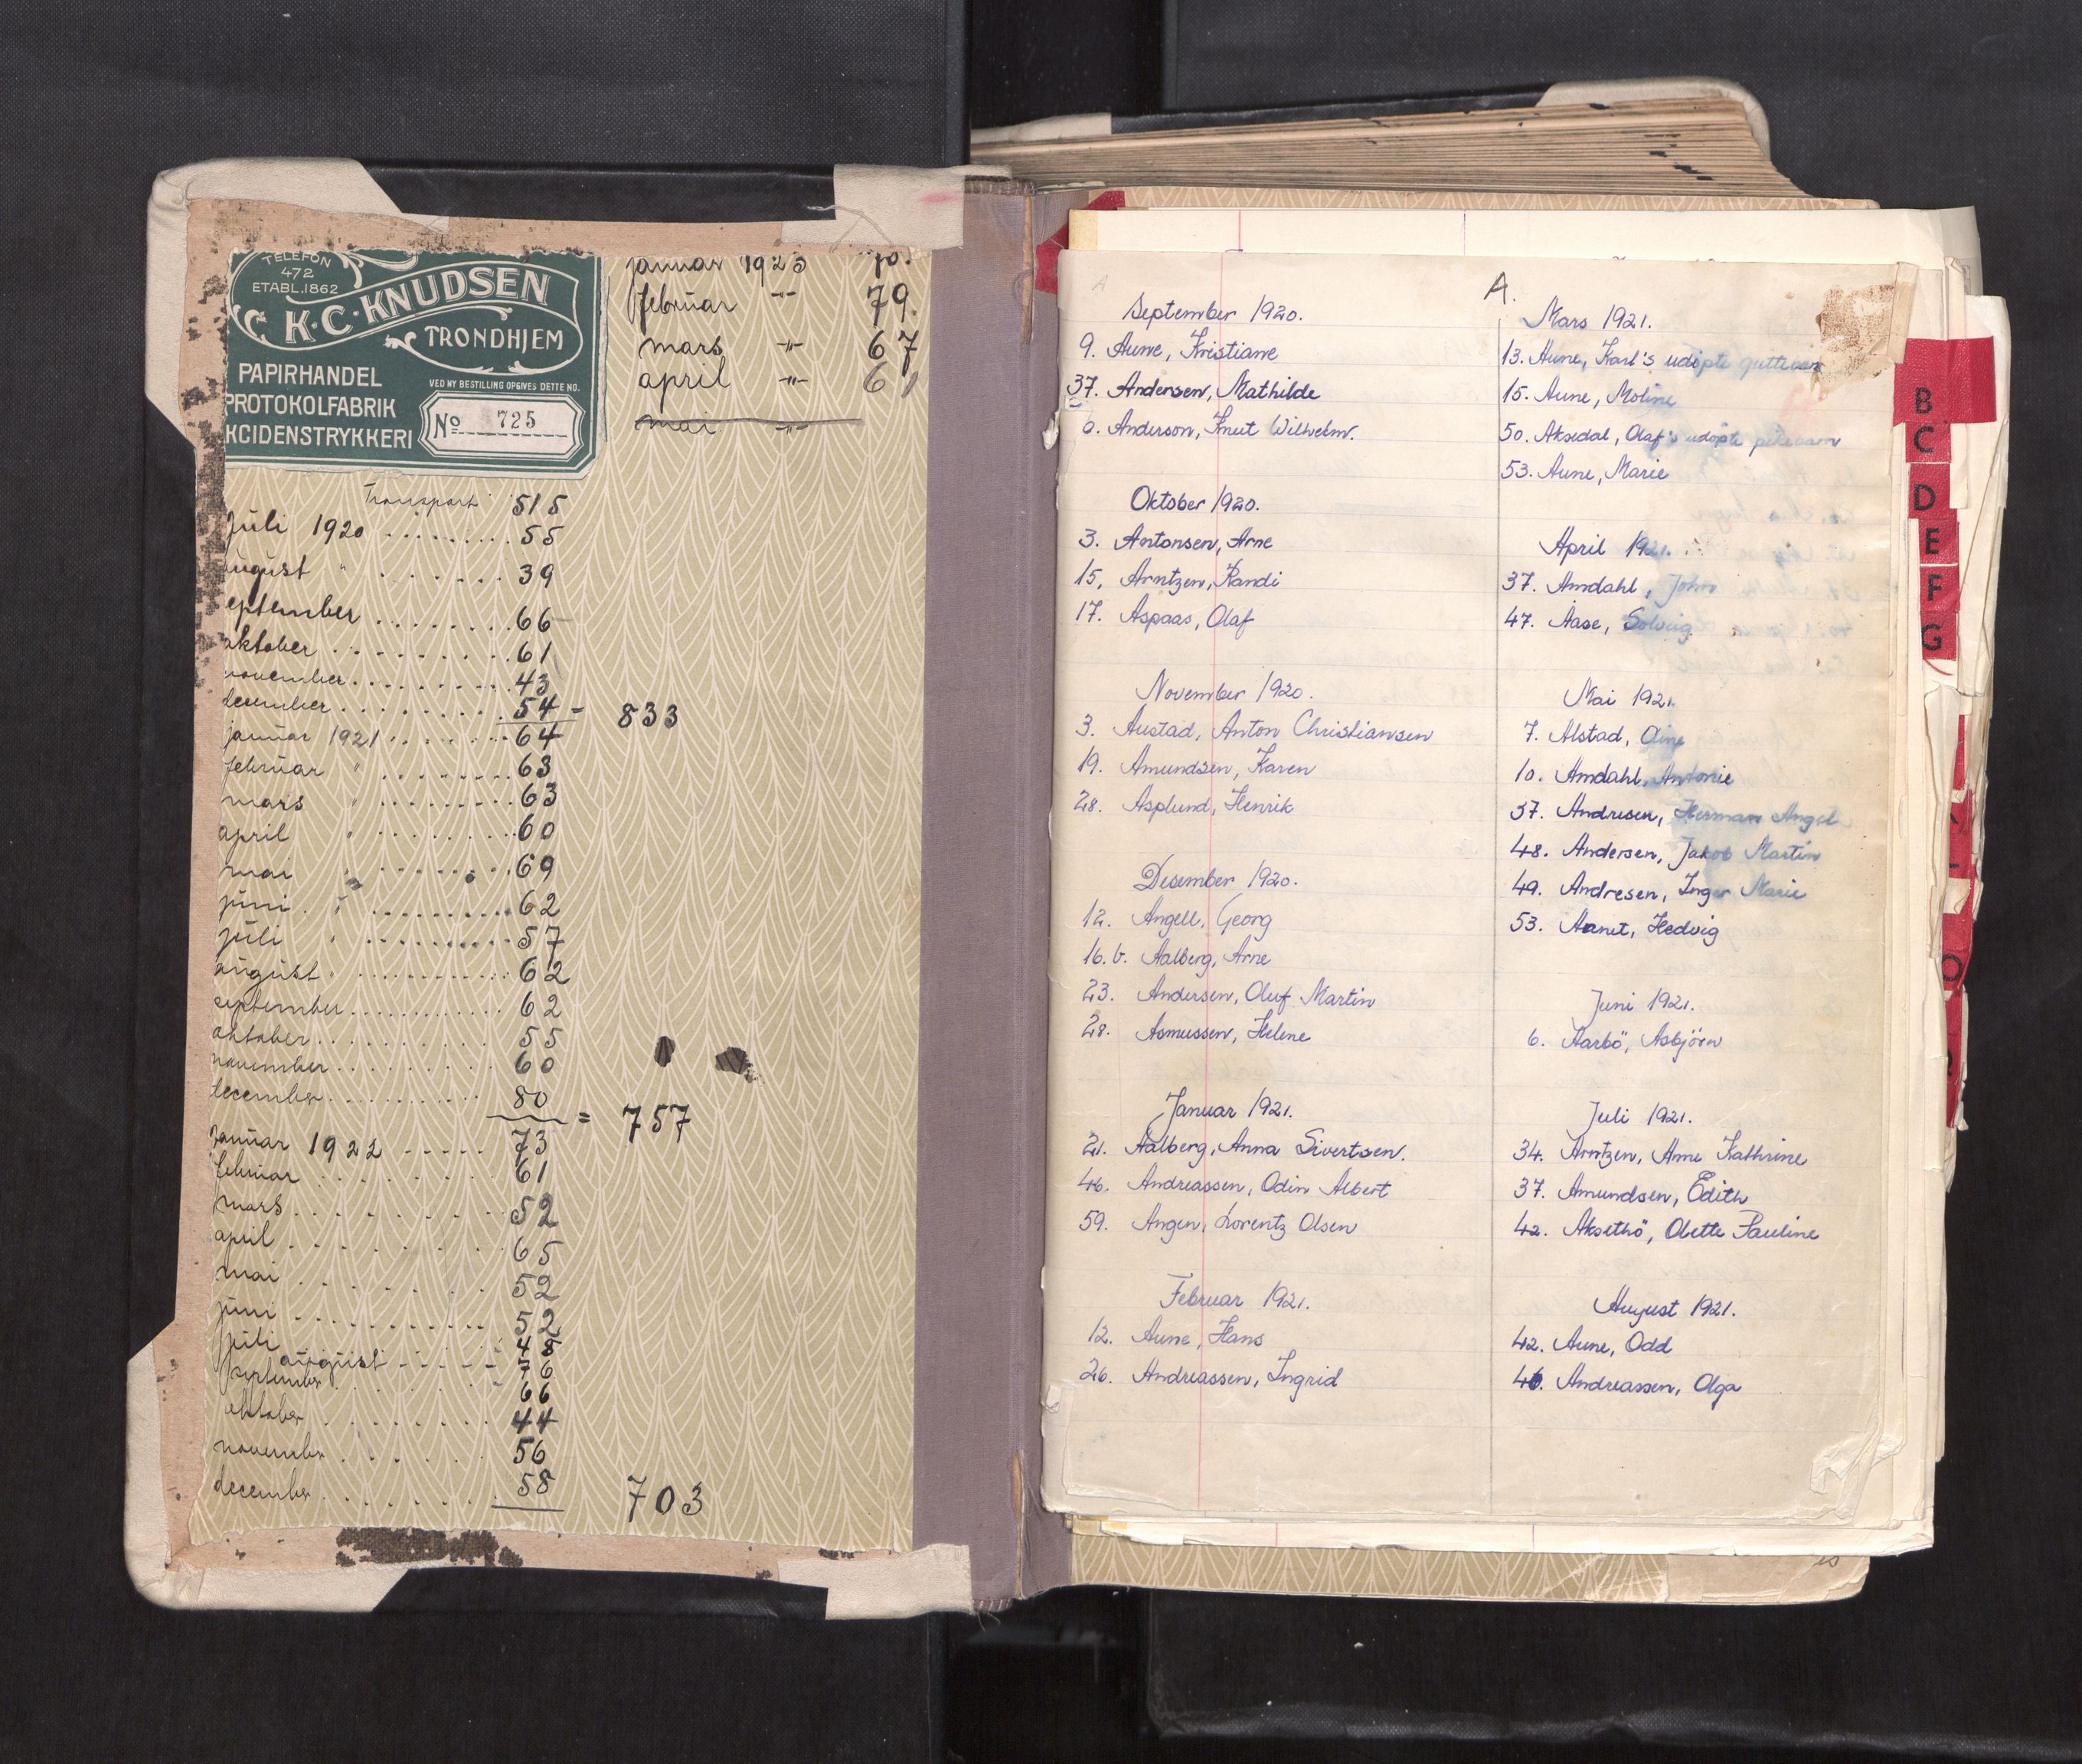 TELEFON
472
ETABL. 1862
K·C·KNUDSEN
TRONDHJEM
PAPIRHANDEL
PROTOKOLFABRIK
KCIDENSTRYKKERI
VED NY BESTILLING OPGIVES DETTE NO.
No 725
januar 1923 70.
februar -"- 79.
mars -"- 67
april -"- 61
mai -"-
Transport 515
juli 1920 ......... 55
august " ....... 39
eptember ........ 66
oktober .......... 61
november .......... 43
december ......... 54 = 833
januar 1921 ....... 64
februar " ........ 63
mars " ......... 63
april " ......... 60
mai " ....... 69
juni " .......... 62
juli " .......... 57
august " .......... 62
september .......... 62
oktober .......... 55
november .......... 60
december .......... 80 = 757
januar 1922 ..... 73
februar ......... 61
mars ......... 52
april ......... 65
mai ......... 52
juni ......... 52
juli 48
august ----- 76
september ........ 66
oktober ........ 44
november ....... 56
december ........ 58 703
A.
September 1920.
9. Aune, Kristiane
37. Andersen, Mathilde
6. Anderson, Knut Wilhelm.
Oktober 1920.
3. Antonsen, Arne
15. Arntzen, Randi
17. Aspaas, Olaf
November 1920.
3. Austad, Anton Christiansen
19. Amundsen, Karen
28. Asplund, Henrik
Desember 1920.
12. Angell, Georg
16.b. Aalberg, Arne
23. Andersen, Oluf Martin
28. Asmussen, Helene
Januar 1921.
21. Aalberg, Anna Sivertsen.
46. Andreassen, Odin Albert
59. Angen, Lorentz Olsen
Februar 1921.
12. Aune, Hans
26. Andreassen, Ingrid
Mars 1921.
13. Aune, Karl's udöpte guttebarn
15. Aune, Moline
50. Aksedal, Olaf's udöpte pikebarn
53. Aune, Marie
April 1921.
37. Amdahl, John
47. Aase, Solveig
Mai 1921.
7. Alstad, Aine
10. Amdahl, Antonie
37. Andresen, Herman Angel
48. Andersen, Jakob Martin
49. Andresen, Inger Marie
53. Aanet, Hedvig
Juni 1921.
6. Aarbö, Asbjörn
Juli 1921.
34. Arntzen, Anne Kathrine
37. Amundsen, Edith
42. Aksethö, Olette Pauline
August 1921.
42. Aune, Odd
46. Andreassen, Olga
B
C
D
E
F
G
O